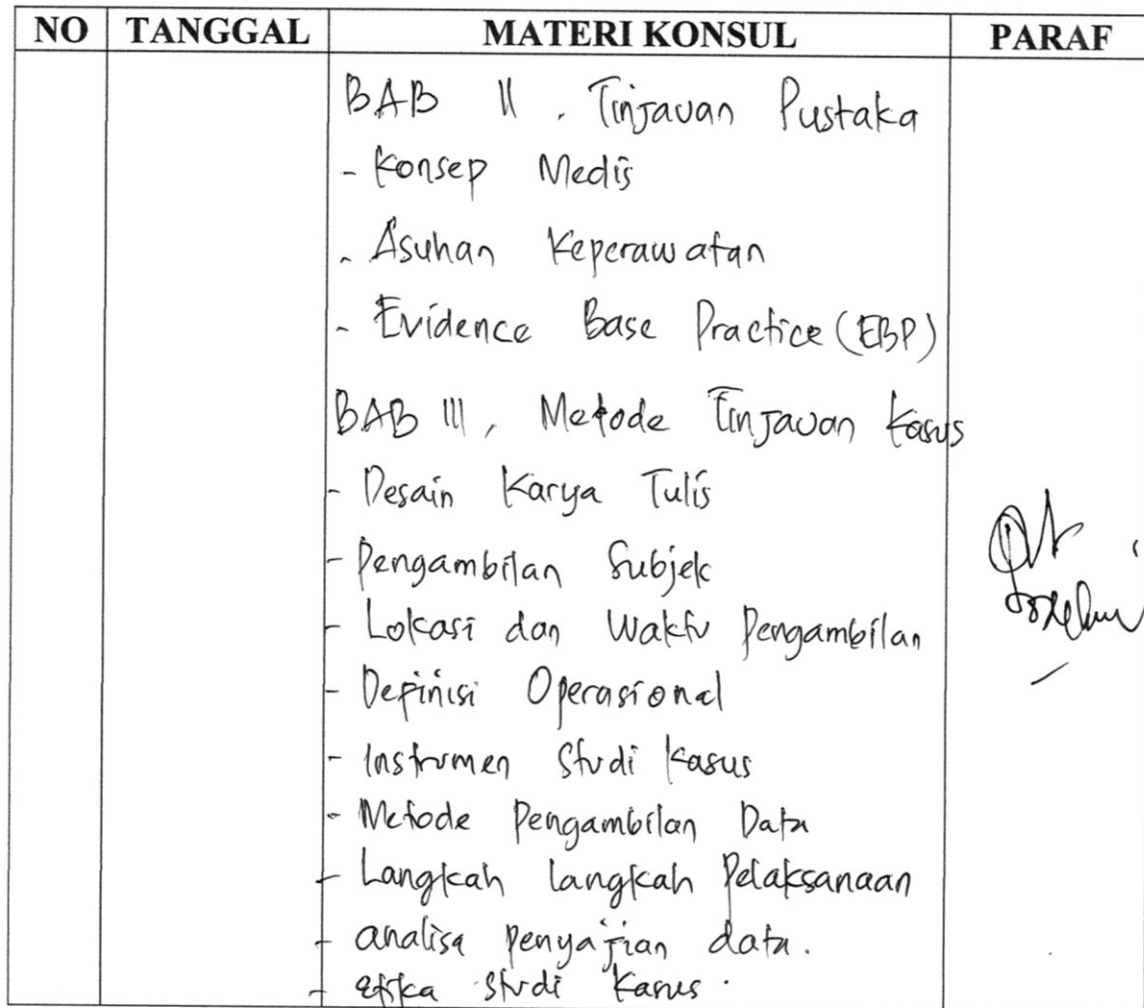 NO TANGGAL MATERI KONSUL PARAF
BAB II. Tinjauan Pustaka
- Konsep Medis
- Asuhan Keperawatan
- Evidence Base Practice (EBP)
BAB III, Metode Tinjauan Kasus
- Desain Karya Tulis
- Pengambilan Subjek
- Lokasi dan Waktu Pengambilan
- Definisi Operasional
- Instrumen Studi Kasus
- Metode Pengambilan Data
- Langkah langkah Pelaksanaan
- analisa penyajian data.
- etika studi kasus.